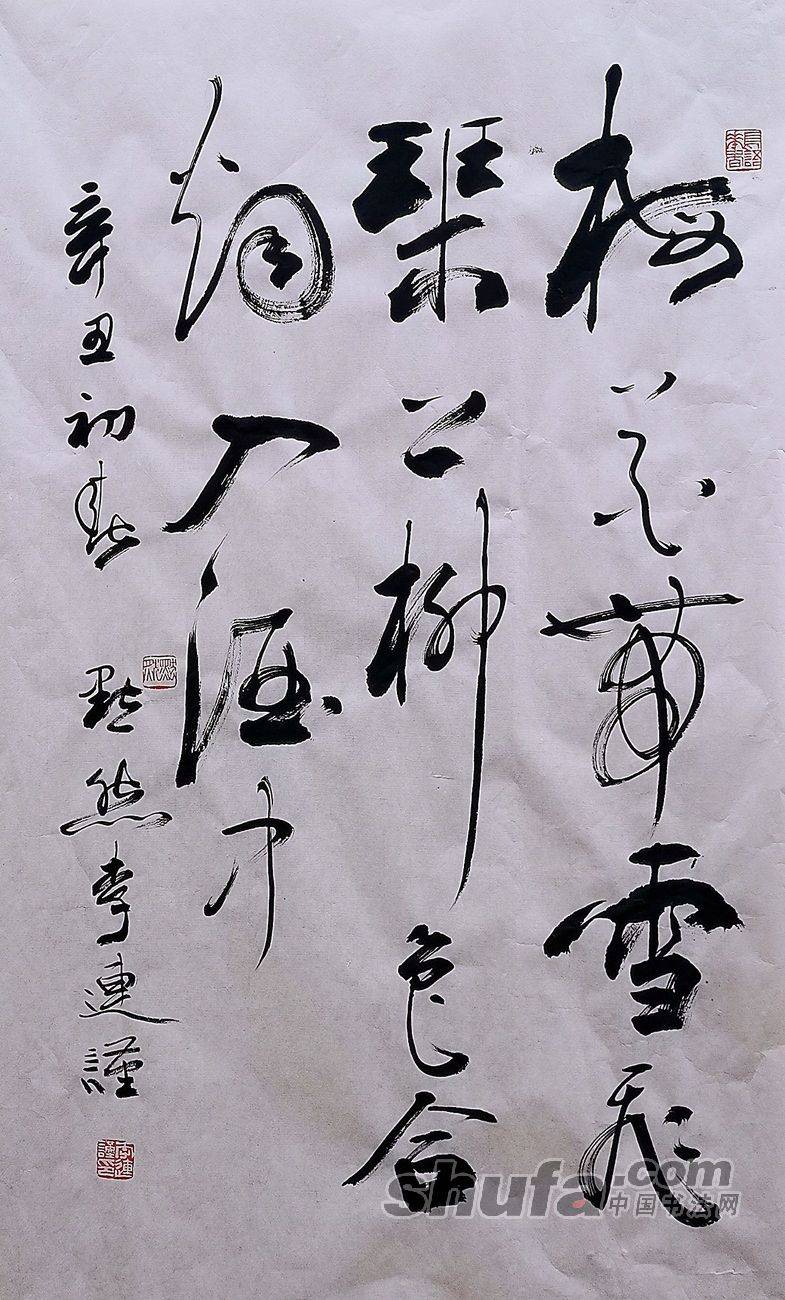 梅花带雪飞
琴上柳色合
烟入酒中
辛丑初春 点然李连谨
shufa.com
中国书法网